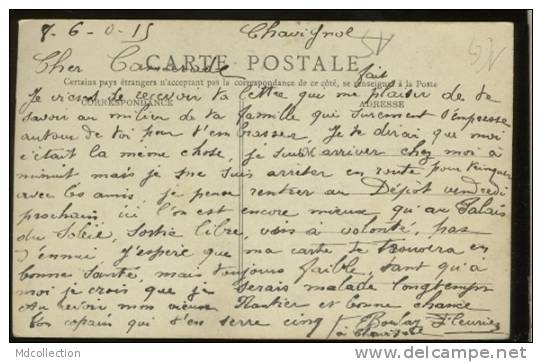 7-6-0-15 Chavignol
Cher Camarade CARTE POSTALE
Certains pays étrangers n'acceptant pas la correspondance de ce côté, se renseigner à la Poste
CORRESPONDANCE ADRESSE
Je viens de recevoir ta lettre que me fait plaisir de te
savoir au milieu de ta famille qui surement s'empresse
autour de toi pour t'embrasser Je te dirai que moi
c'était la même chose, je suis arriver chez moi à
minuit mais je me suis arreter en route pour trinquer
avec les amis. je pense rentrer au Dépot vendredi
prochain, ici l'on est encore mieux qu'au Palais
du Soleil, sortie libre, vin à volonté, pas
d'ennui. J'espère que ma carte te trouvera en
bonne santé mais toujours faible, tant qu'à
moi je crois que je serais malade longtemps
Au revoir mon vieux et bonne chance
Ton copain qui t'en serre cinq Fleurier
à Chavignol
MDcollection delcampe.net